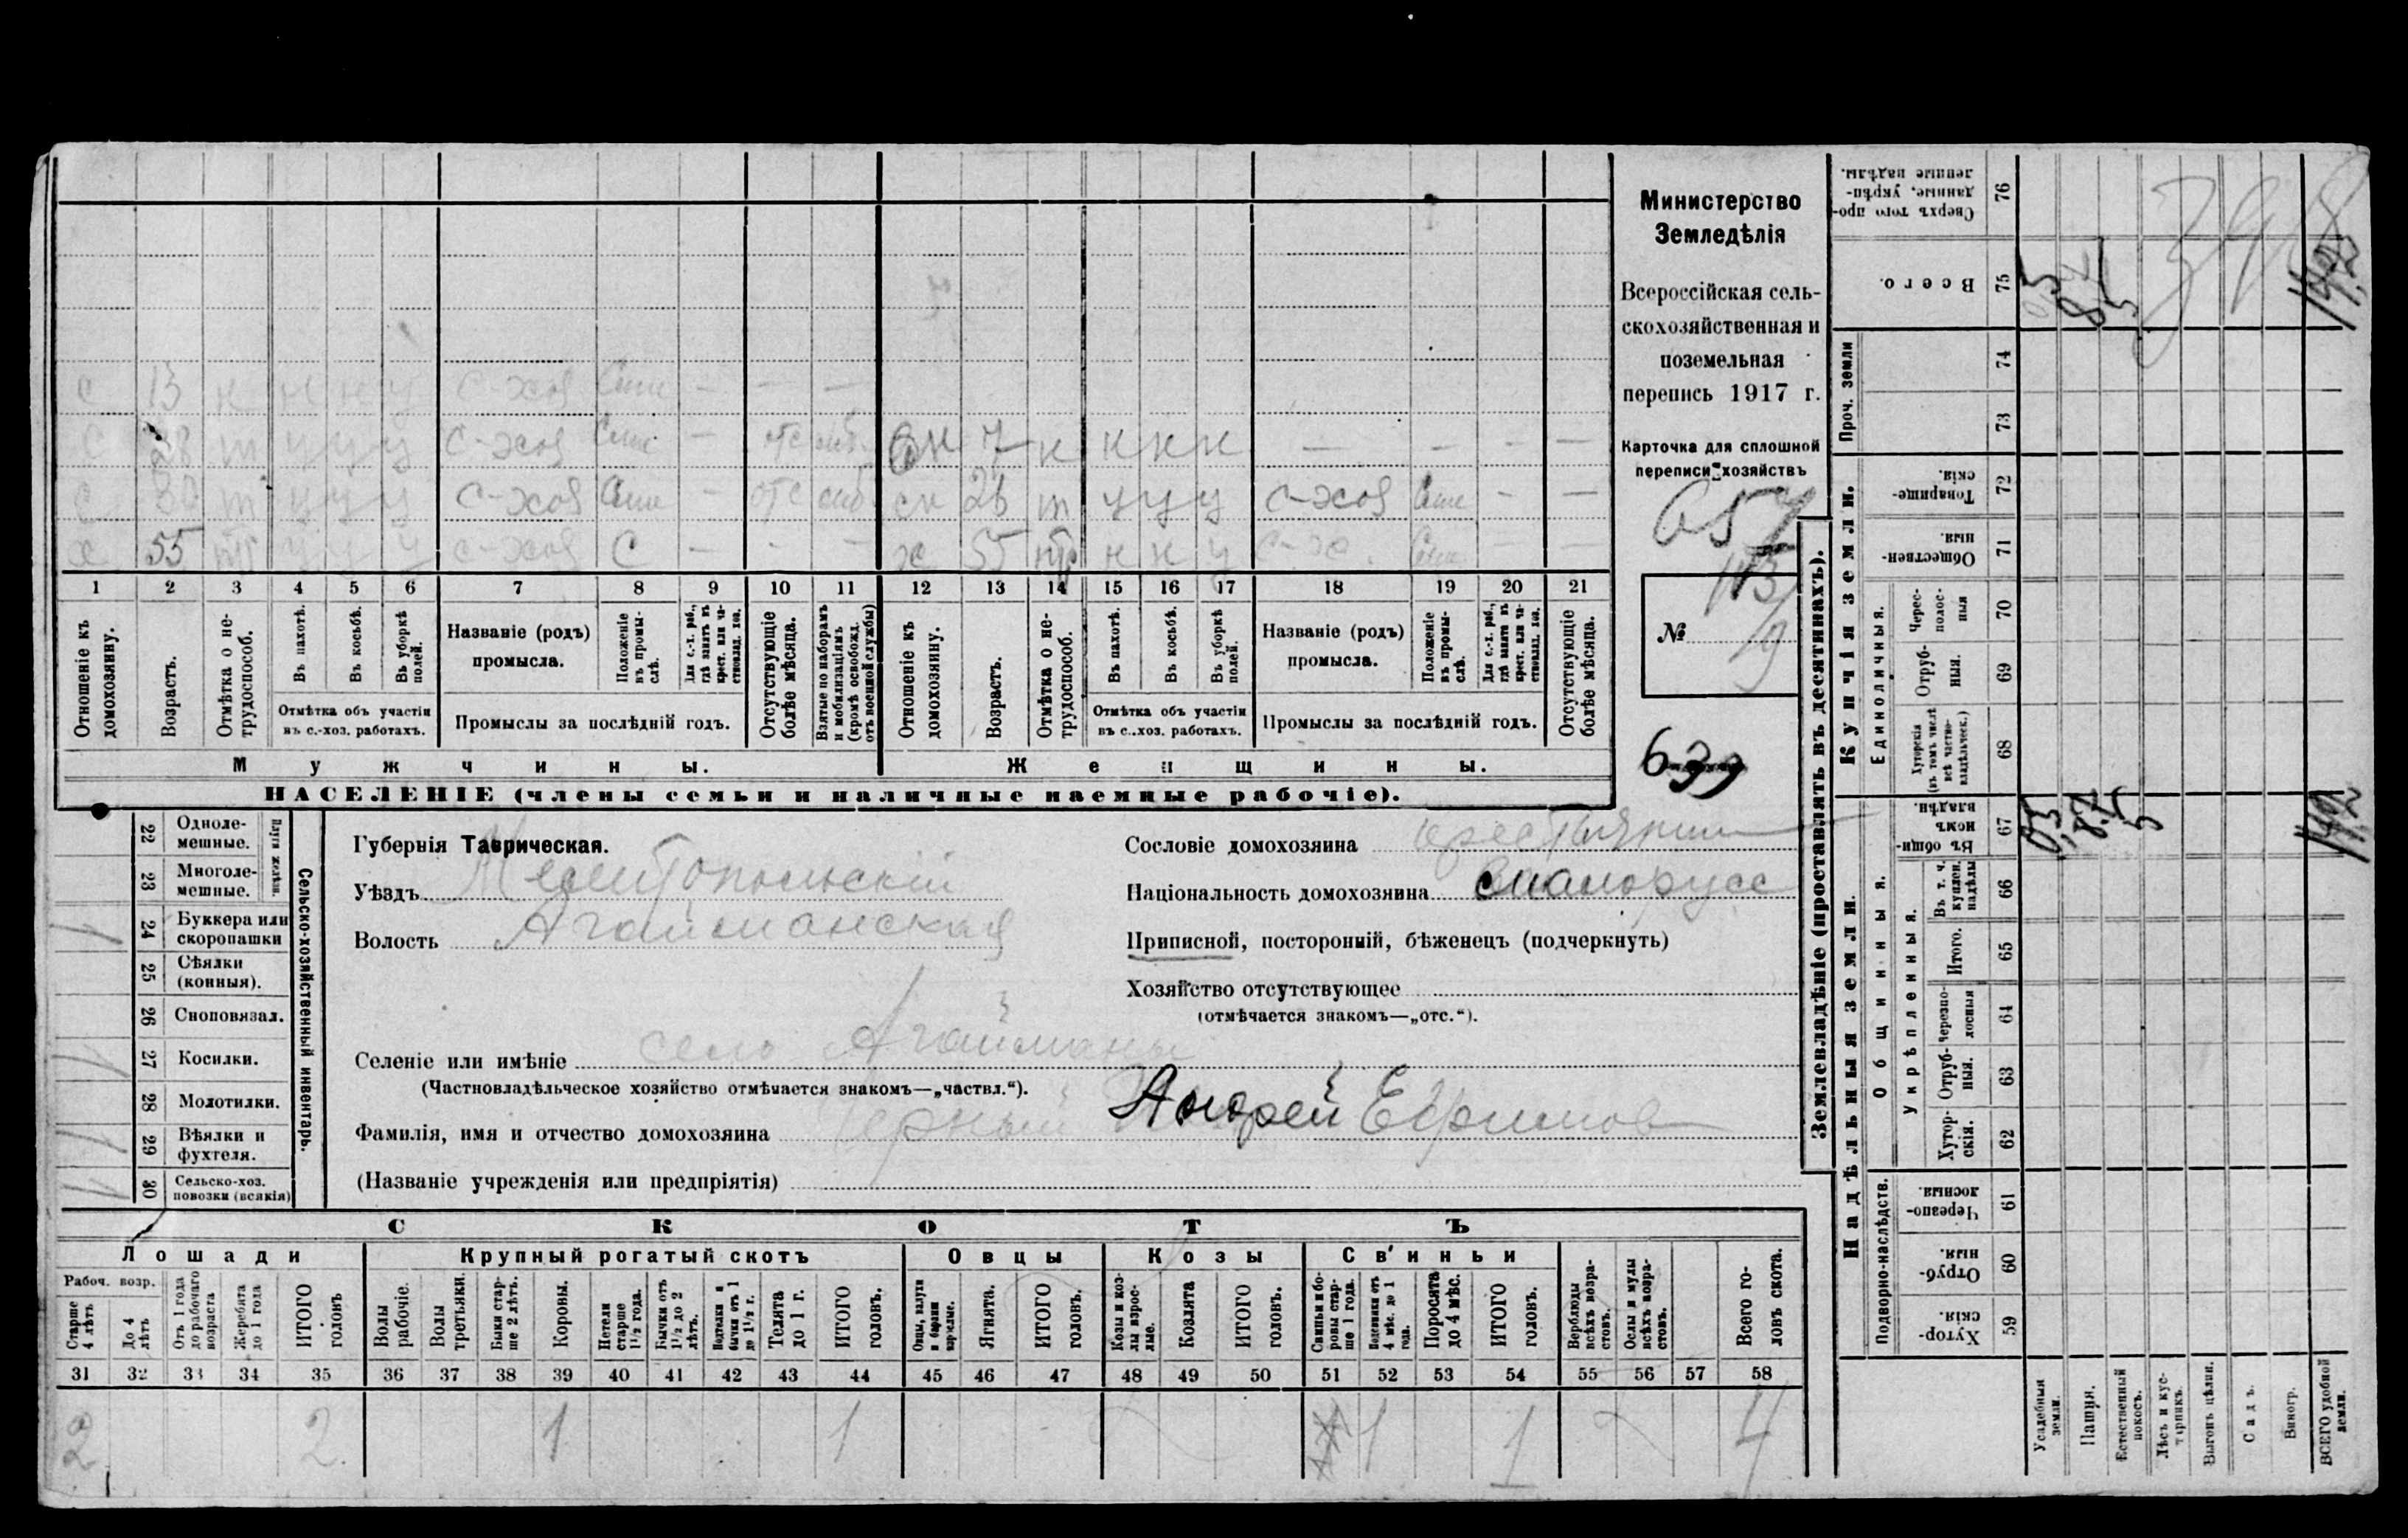 Министерство
Земледѣлія
Всероссійская сель-
скохозяйственная и
поземельная
перепись 1917 г.
Карточка для сплошной
переписи хозяйствъ
657
№
639
с 13 н н н у с-хоз – – –
с 28 т у у у с-хоз – отс моб. 7 н н н н – – – –
с 30 т у у у с-хоз – отс моб сн 26 т у у у с-хоз – –
х 55 у у у с-хоз С – - – ж 55 н н у с-х. – –
1 2 3 4 5 6 7 8 9 10 11 12 13 14 15 16 17 18 19 20 21
Отношеніе къ домохозяину.
Возрастъ.
Отмѣтка о не-трудоспособ.
Въ пахотѣ.
Въ косьбѣ.
Въ уборкѣ полей.
Отмѣтка объ участіи
въ с.-хоз. работахъ.
Названіе (родъ)
промысла.
Положеніе въ промы-слѣ.
Для с.-х. раб., гдѣ занятъ въ крест. или ча-стновлад. хоз.
Промыслы за послѣдній годъ.
Отсутствующіе болѣе мѣсяца.
Взятые по наборамъ и мобилизаціямъ (кромѣ освобожд. отъ военной службы)
Отношеніе къ домохозяину.
Возрастъ.
Отмѣтка о не-трудоспособ.
Въ пахотѣ.
Въ косьбѣ.
Въ уборкѣ полей.
Отмѣтка объ участіи
въ с..хоз. работахъ.
Названіе (родъ)
промысла.
Положеніе въ промы-слѣ.
Для с.-х. раб., гдѣ занята въ крест. или ча-стновлад. хоз.
Промыслы за послѣдній годъ.
Отсутствующіе болѣе мѣсяца.
Мужчины.
Женщины.
НАСЕЛЕНІЕ (члены семьи и наличные наемные рабочіе).
22 Одноле-мешные.
23 Многоле-мешные.
Плуги желѣзн.
24 Буккера или скоропашки 1
25 Сѣялки (конныя).
26 Сноповязал.
27 Косилки. 1
28 Молотилки.
29 Вѣялки и фухтеля. 1
30 Сельско-хоз. повозки (всякія) 1
Сельско-хозяйственный инвентарь.
Губернія Таврическая.
Уѣздъ Мелитопольскій
Волость Агайманская
Селеніе или имѣніе село Агайманы
(Частновладѣльческое хозяйство отмѣчается знакомъ—„частвл.“).
Фамилія, имя и отчество домохозяина Черный Андрей Ефимов
(Названіе учрежденія или предпріятія)
Сословіе домохозяина крестьянин
Національность домохозяина малорусс
Приписной, посторонній, бѣженецъ (подчеркнуть)
Хозяйство отсутствующее
(отмѣчается знакомъ—„отс.“).
СКОТЪ
Лошади
Рабоч. возр.
Старше 4 лѣтъ
До 4 лѣтъ
Отъ 1 года до рабочаго возраста
Жеребята до 1 года
ИТОГО головъ
Крупный рогатый скотъ
Волы рабочіе.
Волы третьяки.
Быки стар-ше 2 лѣтъ.
Коровы.
Нетели старше 1½ года.
Бычки отъ 1½ до 2 лѣтъ.
Подтелки и бычки отъ 1 до 1½ г.
Телята до 1 г.
ИТОГО головъ.
Овцы
Овцы, валухи и бараны взрослые.
Ягнята.
ИТОГО головъ.
Козы
Козы и коз-лы взрос-лые.
Козлята
ИТОГО головъ.
Свиньи
Свиньи и бо-ровы стар-ше 1 года.
Подсвинки отъ 4 мѣс. до 1 года.
Поросята до 4 мѣс.
ИТОГО головъ.
Верблюды всѣхъ возра-стовъ.
Ослы и мулы всѣхъ возра-стовъ.
Всего го-ловъ скота.
31 32 33 34 35 36 37 38 39 40 41 42 43 44 45 46 47 48 49 50 51 52 53 54 55 56 57 58
2 2 1 1 1 1 4
Землевладѣніе (проставлять въ десятинахъ).
Надѣльныя земли.
Подворно-наслѣдств.
Хутор-скія. 59
Отруб-ныя. 60
Черезпо-лосныя. 61
Общинныя.
Укрѣпленныя.
Хутор-скія. 62
Отруб-ныя. 63
Черезпо-лосныя 64
Итого. 65
Въ т. ч. куплен. надѣлы 66
Въ общи-номъ владѣн. 67
Купчія земли.
Единоличныя.
Хуторскія (въ томъ числѣ всѣ частно-владѣльческ.) 68
Отруб-ныя. 69
Черес-полос-ныя 70
Обществен-ныя. 71
Товарище-скія. 72
Проч. земли
73
74
Всего. 75
Сверхъ того про-данные, укрѣп-ленные надѣлы. 76
Усадебныя земли.
Пашня.
Естественный покосъ.
Лѣсъ и кус-тарникъ.
Выгонъ цѣлин.
Садъ.
Виногр.
ВСЕГО удобной земли.